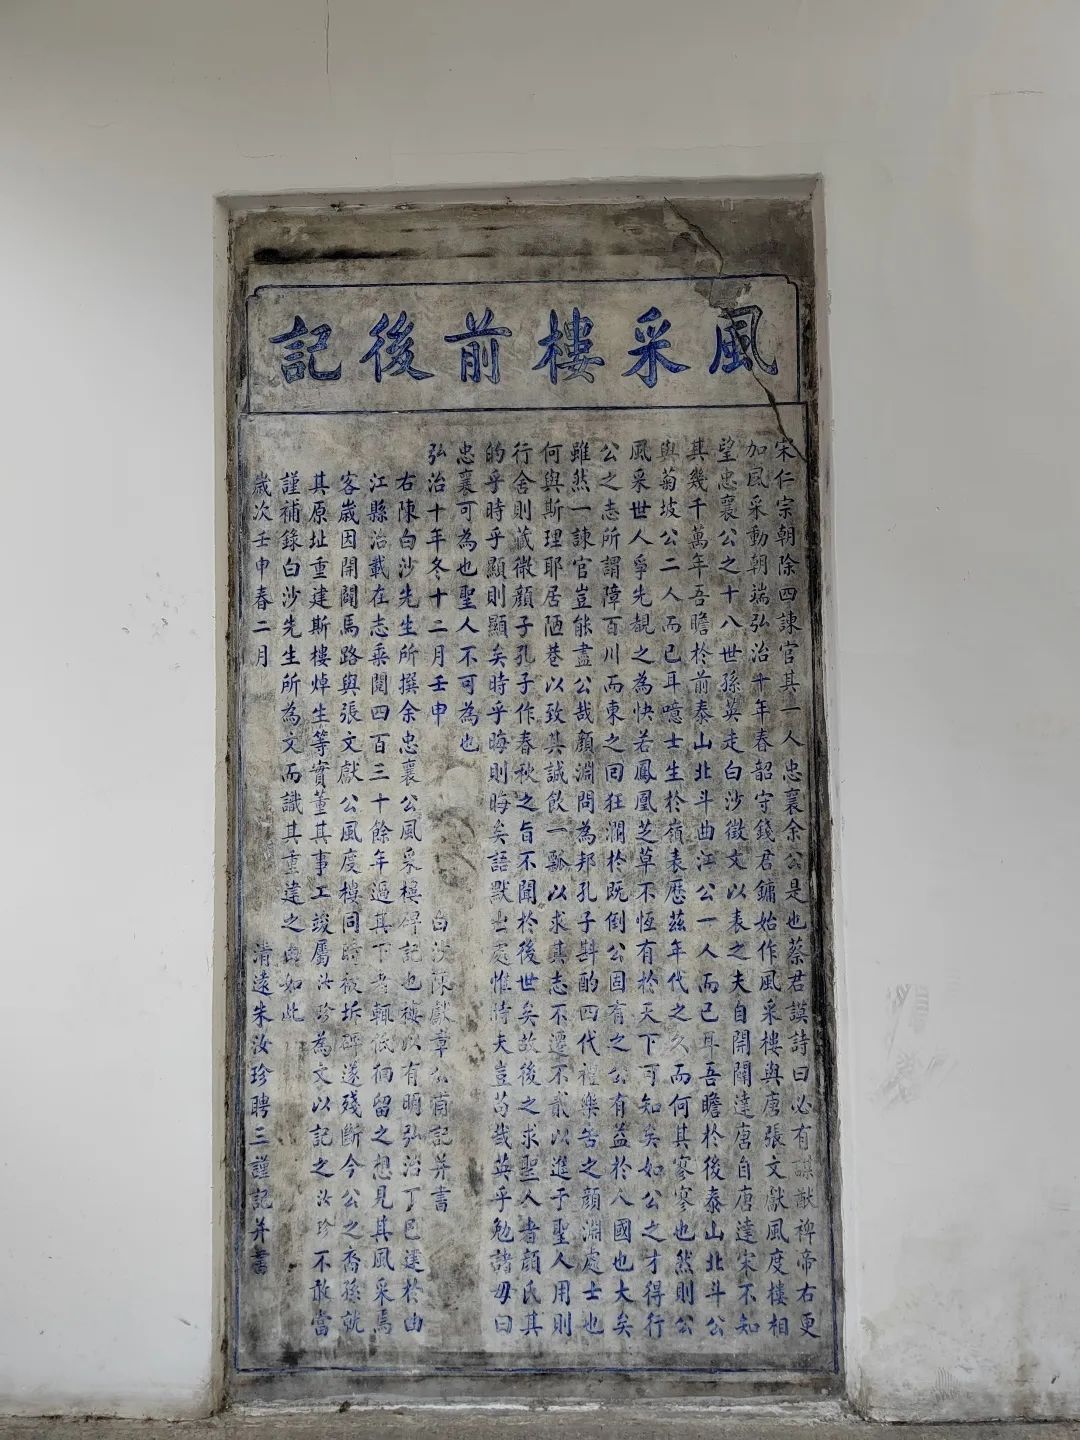 風采樓前後記
宋仁宗朝除四諫官其一人忠襄余公是也蔡君謨詩曰必有謀猷裨帝右更
加風采動朝端弘治十年春韶守錢君鏞始作風采樓與唐張文獻風度樓相
望忠襄公之十八世孫英走白沙徵文以表之夫自開闢達唐自唐達宋不知
其幾千萬年吾瞻於前泰山北斗曲江公一人而已耳吾瞻於後泰山北斗公
與菊坡公二人而已耳噫士生於嶺表歷茲年代之久而何其寥寥也然則公
風采世人爭先覩之為快若鳳凰芝草不恆有於天下可知矣如公之才得行
公之志所謂障百川而東之回狂瀾於既倒公固有之公有益於人國也大矣
雖然一諫官豈能盡公哉顏淵問為邦孔子斟酌四代禮樂告之顏淵處士也
何與斯理耶居陋巷以致其誠飲一瓢以求其志不遷不貳以進于聖人用則
行舍則藏微顏子孔子作春秋之旨不聞於後世矣故後之求聖人者顏氏其
的乎時乎顯則顯矣時乎晦則晦矣語默出處惟時夫豈苟哉英乎勉諸毋曰
忠襄可為也聖人不可為也
弘治十年冬十二月壬申 白沙陳獻章公甫記并書
右陳白沙先生所撰余忠襄公風采樓碑記也樓以有明弘治丁巳建於曲
江縣治載在志乘閱四百三十餘年過其下者輒低徊留之想見其風采焉
客歲因開闢馬路與張文獻公風度樓同時被拆碑遂殘斷今公之裔孫就
其原址重建斯樓焯生等實董其事工竣屬汝珍為文以記之汝珍不敢當
謹補錄白沙先生所為文而識其重建之如此
歲次壬申春二月 清遠朱汝珍聘三謹記并書